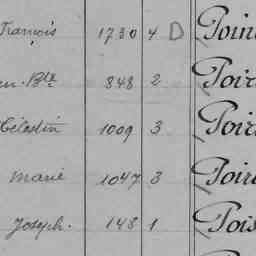 François 1730 4 D Poin
Bte 848 2 Poir
Célestin 1009 3 Poir
Marie 1047 3 Poir
Joseph. 148 1 Pois